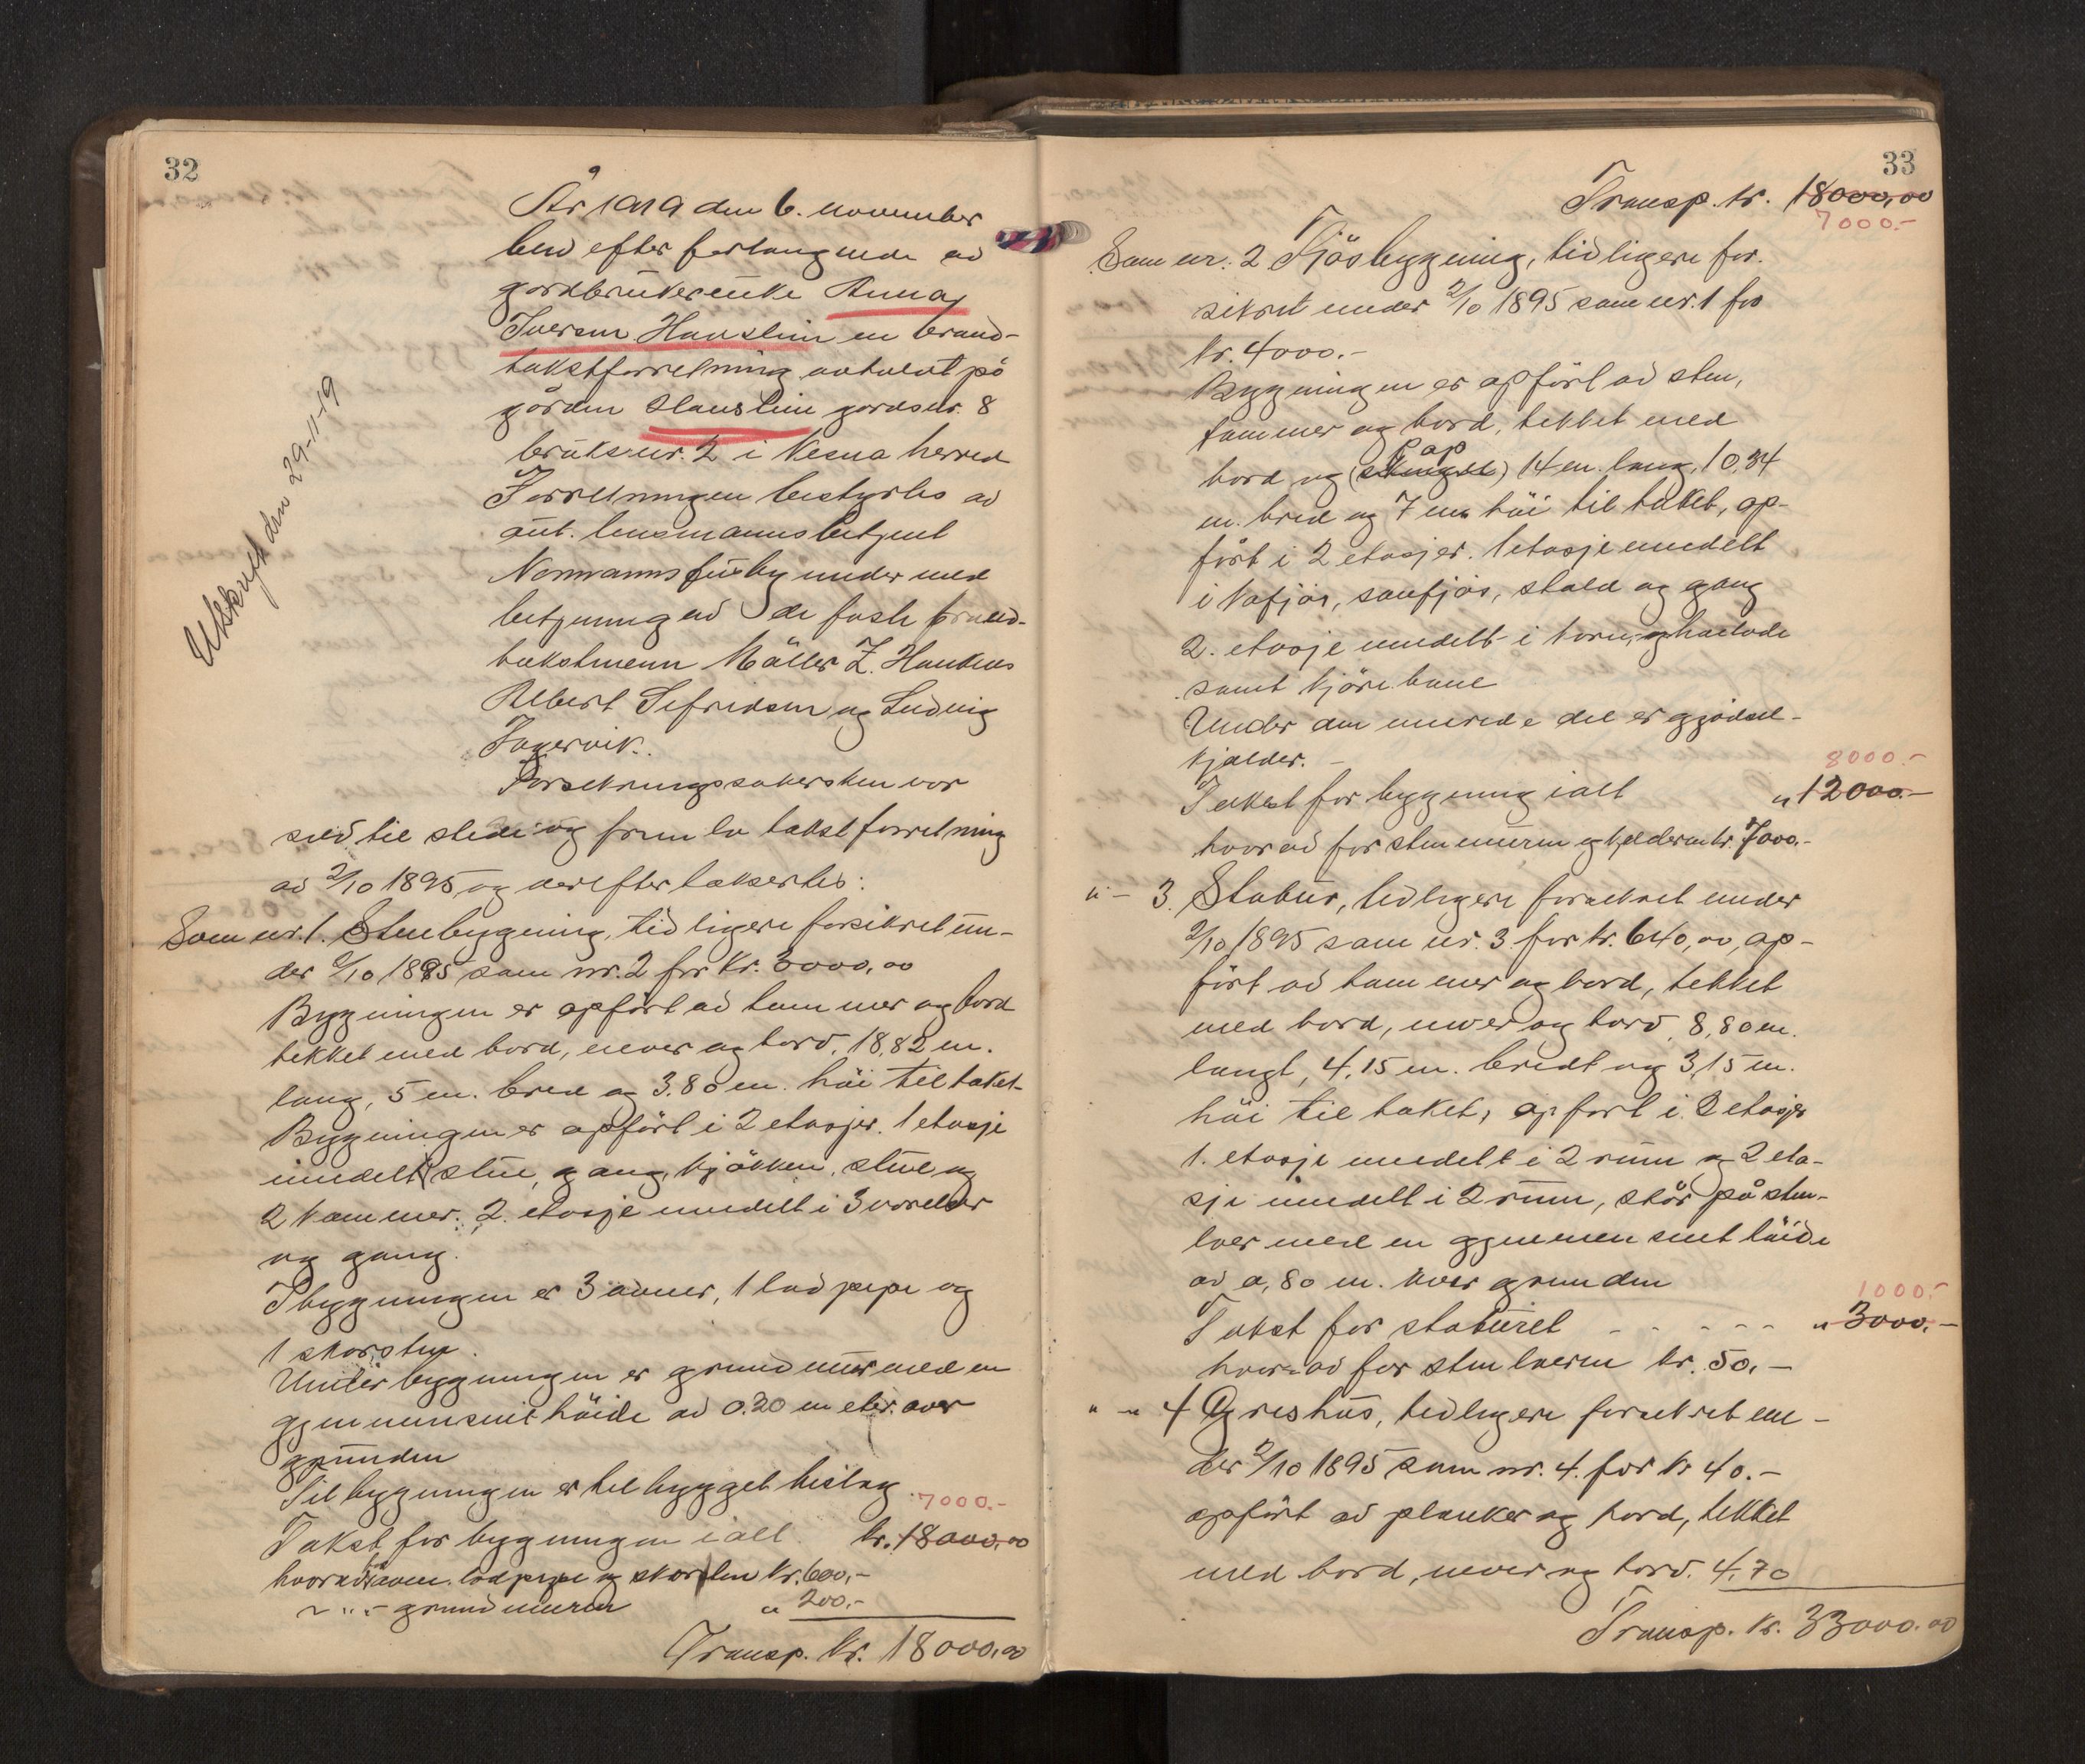 32
År 1919 den 6. november
blev efter forlangende av
gardbrukerenke Anna
Iversen Handstein en brand-
takstforretning avholdt på
gården Handstein gardsnr. 8
bruksnr. 2 i Nesna herred
Forretningen bestyrtes av
aut. lensmannsbetjent
Normanns fullby under med
betjening av de faste brand-
takstmenn Møller Z. Hankens
Albert Sefridsen og Ludvig
Jagervik.
Forsekringssøkersken var
selv til stede og frem la takstforretning
av 2/10 1895 og derefter taksertes:
Utskrift den 29-11-19
Som nr. 1. Stuebygning, tidligere forsikret un-
der 2/10 1895 som nr. 2 for kr. 3000,00
Bygningen er opført av tømmer og bord
tekket med bord, never og torv, 18,82 m.
lang, 5 m. bred og 3.80 m. høi til taket.
Bygningen er opført i 2 etasjer. 1 etasje
inndelt i stue, gang, kjøkken, stue og
2 kammer. 2. etasje inndelt i 3 værelser
og gang.
I bygningen er 3 ovner, 1 lodpipe og
1 skorsten.
Under bygningen er grundmur med en
gjennemsnit høide av 0.20 meter over
grunden
Til bygningen er tilbygget bislag
7000.-
Takst for bygningen ialt kr. 18000,00
hvorav for ovner. lodpipe og skorsten kr. 600,-
~ " - grundmuren " 200.-
Transp. kr. 18000,00
33
Transp. kr. 18000,00
7000.-
Som nr. 2 Fjøsbygning, tidligere for-
sikret under 2/10 1895 som nr. 1 for
kr. 4000.-
Bygningen er opført av sten,
tømmer og bord, tekket med
pap
bord og (shingel) 14 m. lang, 10,34
m. bred og 7 m høi til taket, op-
ført i 2 etasjer. 1 etasje inndelt
i kofjøs, saufjøs, stald og gang
2. etasje inndelt i korn, og høilade
samt kjørebane
Under den murede del er gjødsel-
kjelder. -
8000.-
Takst for bygning ialt " 12000.-
hvorav for stenmuren og kjelderen kr. 7000.-
" - 3. Stabur, tidligere forsekret under
2/10 1895 som nr. 3 for kr. 640,00, op-
ført av tømmer og bord, tekket
med bord, never og torv, 8,80 m.
langt, 4,15 m. bredt og 3,15 m.
høi til taket, opført i 2 etasjer
1. etasje inndelt i 2 rum og 2 eta-
sje inndelt i 2 rum, står på sten-
loer med en gjennemsnit høide
av 0,80 m. over grunden
1000.-
Takst for staburet - - - - - " 3000.-
hvorav for stenloerne kr. 50.-
" - " 4 Grishus, tidligere forsekret un-
der 2/10 1895 som nr. 4. for kr 40.-
opført av planker og bord, tekket
med bord, never og torv. 4,70
Transp. kr. 33000.00